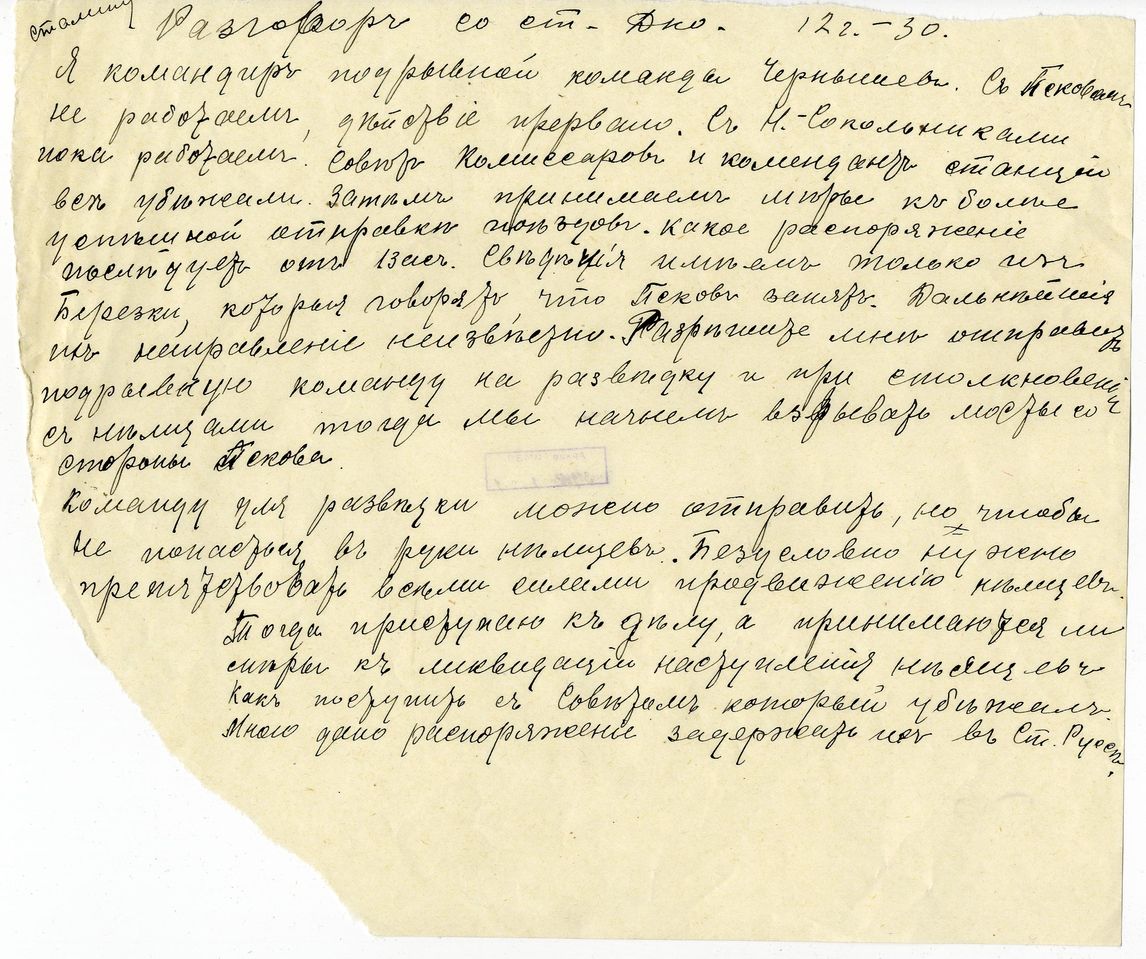 Сталину
Разговоръ со ст. Дно. 12 г. - 30.
Я командиръ подрывной команды Чернышевъ. Съ Псковомъ
не работаемъ, дѣйствіе прервано. Съ Н.-Сокольниками
пока работаемъ. Совѣтъ Комиссаровъ и комендантъ станціи
всѣ убѣжали. Затѣмъ принимаемъ мѣры къ болѣе
успѣшной отправкѣ поѣздовъ. Какое распоряженіе
послѣдуетъ отъ Васъ. Свѣдѣнія имѣемъ только изъ
Березки, которыя говорятъ что Псковъ занятъ. Дальнѣйшія
ихъ направленіе неизвѣстно. Разрѣшите мнѣ отправить
подрывную команду на развѣдку и при столкновеніи
съ нѣмцами тогда мы начнемъ взрывать мосты со
стороны Пскова.
Команду для развѣдки можно отправить, но чтобы
не попасться въ руки нѣмцевъ. Безусловно нужно
препятствовать всѣми силами продвиженію нѣмцевъ.
Тогда приступаю къ дѣлу, а принимаются ли
мѣры къ ликвидаціи наступленія нѣмцевъ
Какъ поступить съ Совѣтомъ который убѣжалъ.
Мною дано распоряженіе задержать ихъ въ Ст. Руссѣ.